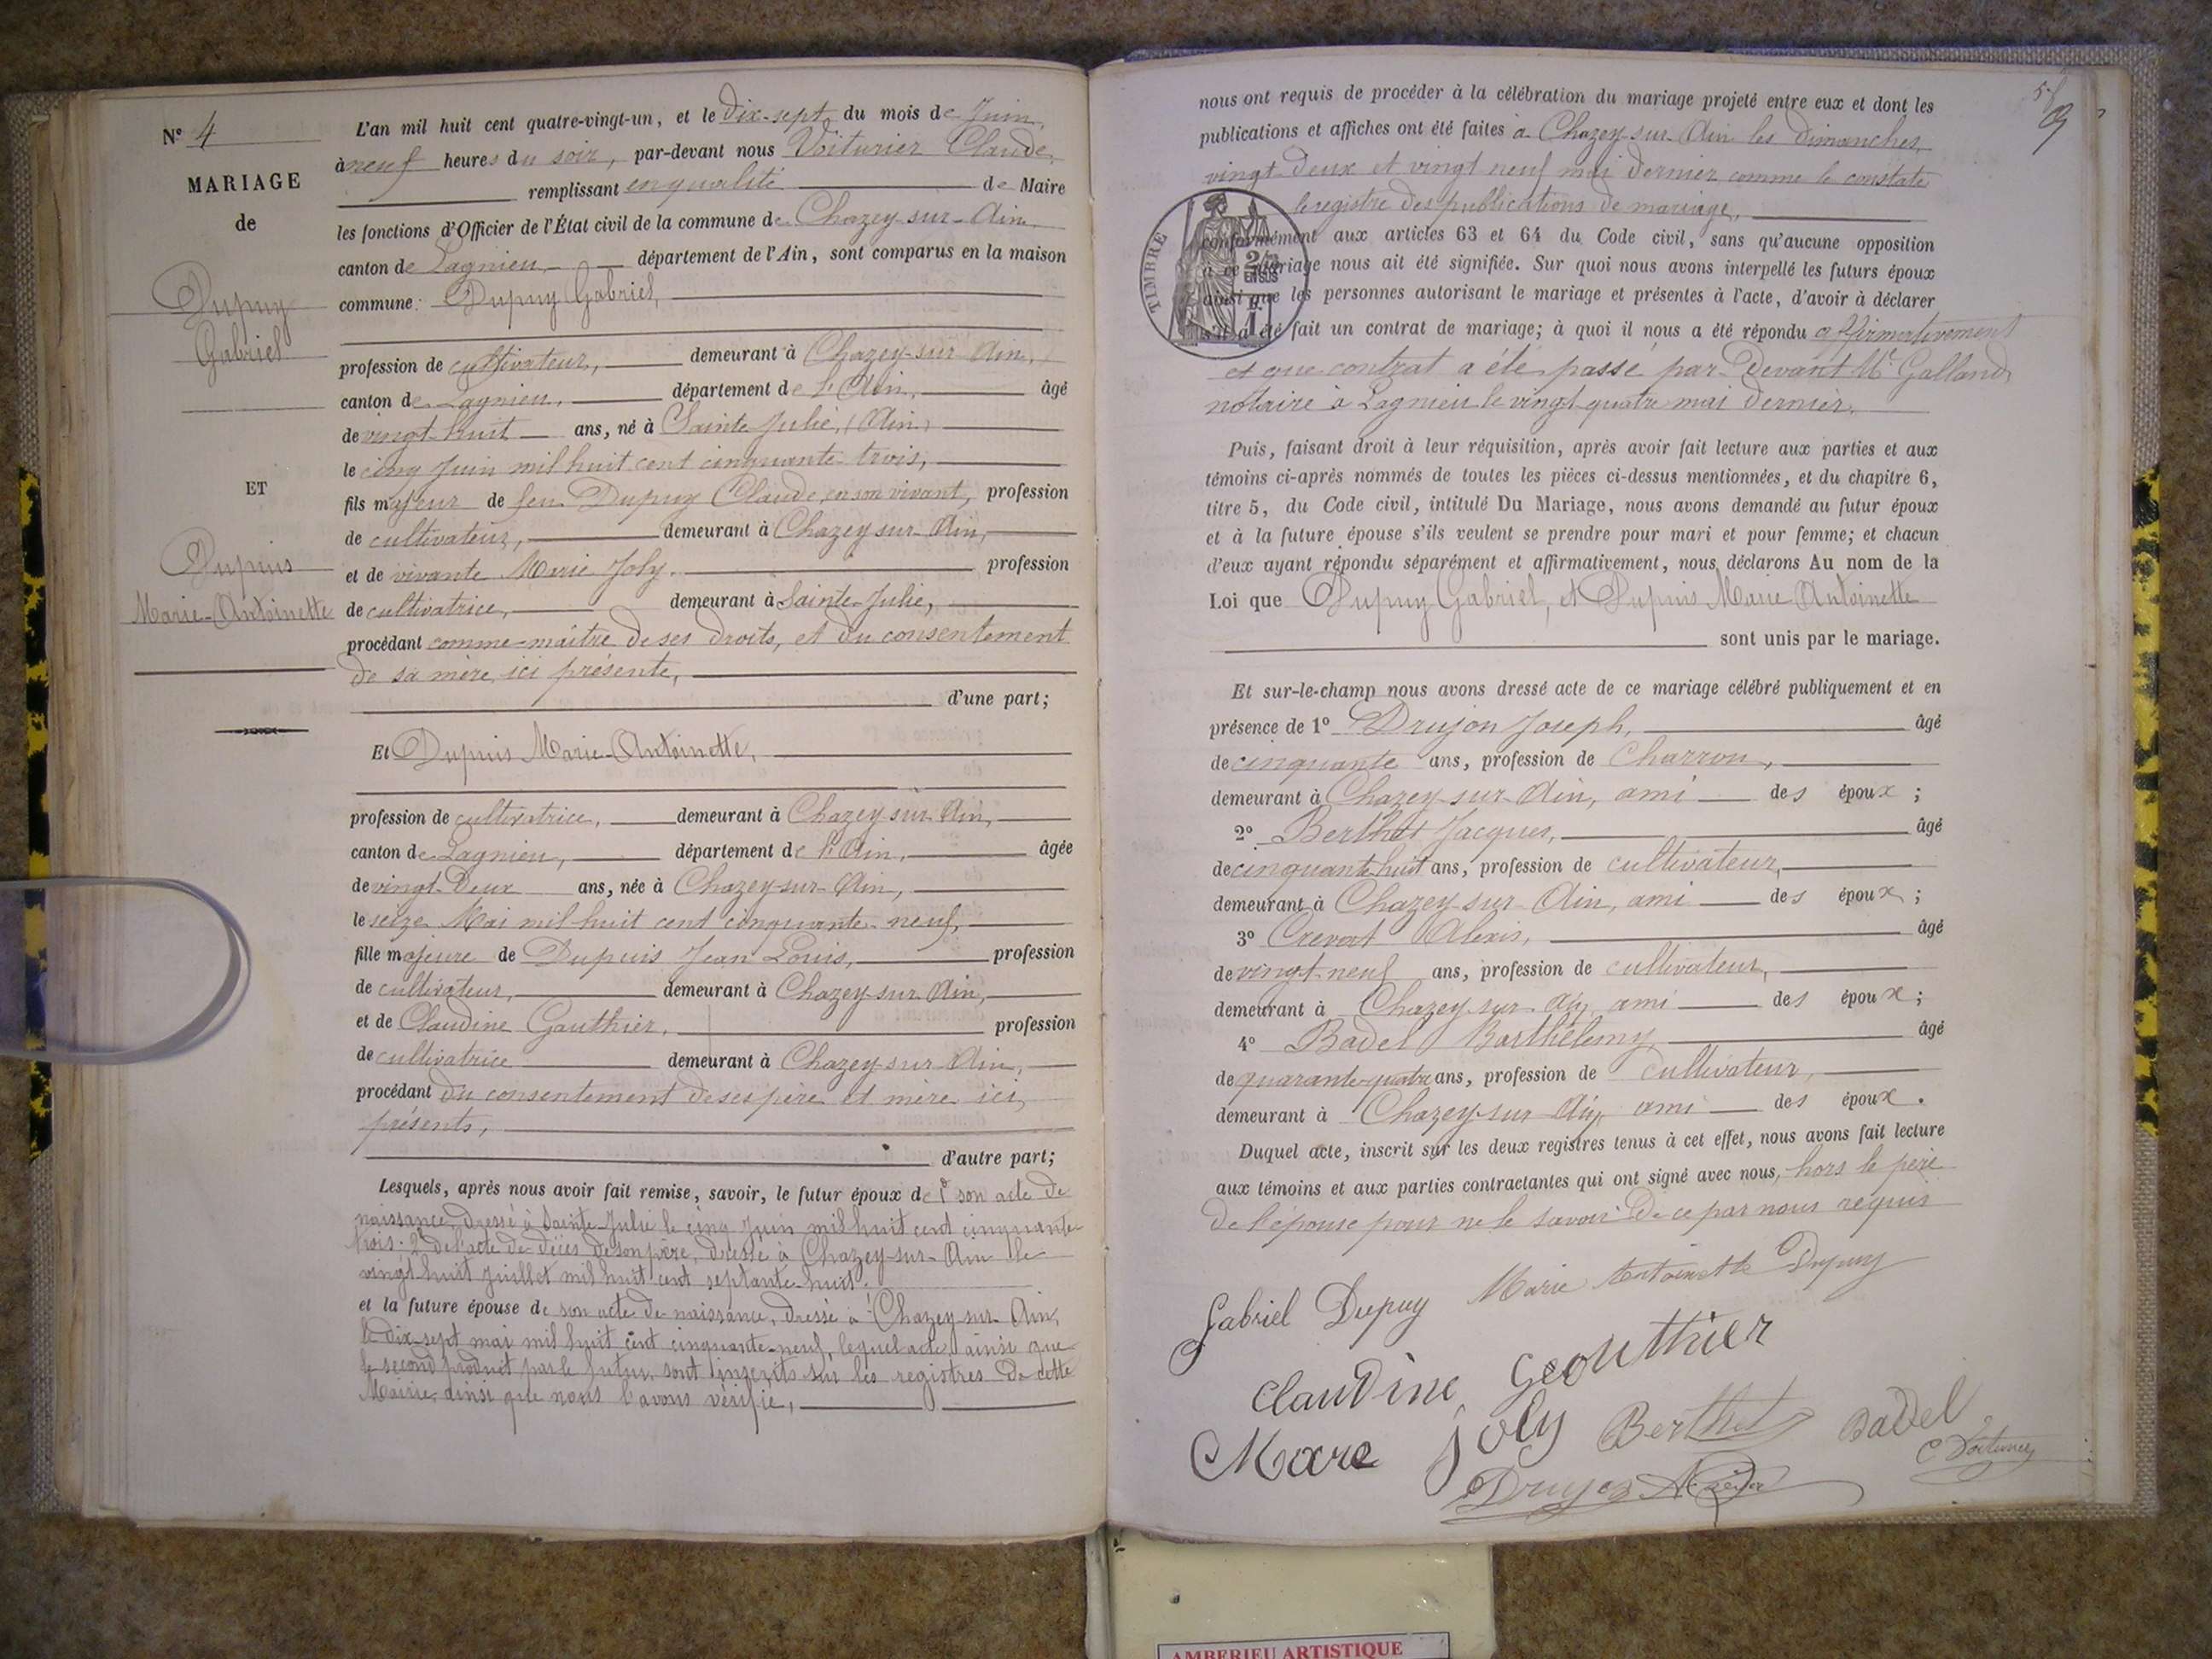 N° 4
MARIAGE
de
Dupuy
Gabriel
ET
Dupuis
Marie-Antoinette
L'an mil huit cent quatre-vingt-un, et le dix-sept du mois de Juin,
à neuf heures du soir, par-devant nous Voiturier Claude,
remplissant en qualité de Maire
les fonctions d'Officier de l'État civil de la commune de Chazey-sur-Ain
canton de Lagnieu, département de l'Ain, sont comparus en la maison
commune: Dupuy Gabriel,
profession de cultivateur, demeurant à Chazey-sur-Ain,
canton de Lagnieu, département de l'Ain, âgé
de vingt-huit ans, né à Sainte Julie, (Ain)
le cinq Juin mil huit cent cinquante-trois,
fils majeur de feu Dupuy Claude, en son vivant, profession
de cultivateur, demeurant à Chazey-sur-Ain,
et de vivante Marie Joly. profession
de cultivatrice, demeurant à Sainte-Julie,
procédant comme maître de ses droits, et du consentement
de sa mère, ici présente,
d'une part;
Et Dupuis Marie-Antoinette,
profession de cultivatrice, demeurant à Chazey-sur-Ain,
canton de Lagnieu, département de l'Ain, âgée
de vingt-deux ans, née à Chazey-sur-Ain,
le seize Mai mil huit cent cinquante-neuf,
fille majeure de Dupuis Jean Louis, profession
de cultivateur, demeurant à Chazey-sur-Ain,
et de Claudine Gauthier, profession
de cultivatrice demeurant à Chazey-sur-Ain,
procédant du consentement de ses père et mère ici
présents,
d'autre part;
Lesquels, après nous avoir fait remise, savoir, le futur époux de 1° son acte de
naissance, dressé à Sainte-Julie le cinq Juin mil huit cent cinquante
trois. 2° de l'acte de décès de son père, dressé à Chazey-sur-Ain le
vingt huit Juillet mil huit cent septante-huit.
et la future épouse de son acte de naissance, dressé à Chazey-sur-Ain,
le dix-sept mai mil huit cent cinquante-neuf, lequel acte, ainsi que
le second produit par le futur, sont inscrits sur les registres de cette
Mairie, ainsi que nous l'avons vérifié,
nous ont requis de procéder à la célébration du mariage projeté entre eux et dont les
publications et affiches ont été faites à Chazey-sur-Ain les dimanches,
vingt-deux et vingt neuf mai dernier comme le constate
le registre des publications de mariage,
TIMBRE
2/10
EN SUS
conformément aux articles 63 et 64 du Code civil, sans qu'aucune opposition
à ce mariage nous ait été signifiée. Sur quoi nous avons interpellé les futurs époux
ainsi que les personnes autorisant le mariage et présentes à l'acte, d'avoir à déclarer
s'il a été fait un contrat de mariage; à quoi il nous a été répondu affirmativement
et que contrat a été passé par devant Me Galland,
notaire à Lagnieu le vingt quatre mai dernier.
Puis, faisant droit à leur réquisition, après avoir fait lecture aux parties et aux
témoins ci-après nommés de toutes les pièces ci-dessus mentionnées, et du chapitre 6,
titre 5, du Code civil, intitulé Du Mariage, nous avons demandé au futur époux
et à la future épouse s'ils veulent se prendre pour mari et pour femme; et chacun
d'eux ayant répondu séparément et affirmativement, nous déclarons Au nom de la
Loi que Dupuy Gabriel, et Dupuis Marie Antoinette
sont unis par le mariage.
Et sur-le-champ nous avons dressé acte de ce mariage célébré publiquement et en
présence de 1° Drujon Joseph, âgé
de cinquante ans, profession de Charron,
demeurant à Chazey-sur-Ain, ami des époux;
2° Berthet Jacques, âgé
de cinquante huit ans, profession de cultivateur,
demeurant à Chazey-sur-Ain, ami des époux;
3° Crevat Alexis, âgé
de vingt-neuf ans, profession de cultivateur,
demeurant à Chazey-sur-Ain, ami des époux;
4° Badel Barthélemy, âgé
de quarante-quatre ans, profession de cultivateur,
demeurant à Chazey-sur-Ain, ami des époux.
Duquel acte, inscrit sur les deux registres tenus à cet effet, nous avons fait lecture
aux témoins et aux parties contractantes qui ont signé avec nous, hors le père
de l'épouse pour ne le savoir de ce par nous requis
Gabriel Dupuy Marie Antoinette Dupuy
Claudine Geouthier
Mare joly Berthet Badel
C Voiturier
Drujon
AMBERIEU ARTISTIQUE